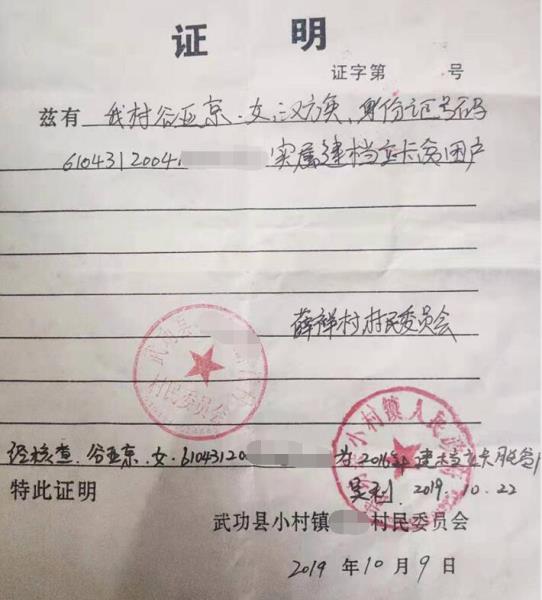 证 明
证字第 号
兹有 我村谷亚京,女,汉族,身份证号码
6104312004 实属建档立卡贫困户
薛祥村村民委员会
武功县
村民委员会
小村镇人民政府
经核查,谷亚京,女,61043120 为2016年建档立卡脱贫户
特此证明 吴利 2019.10.22
武功县小村镇 村民委员会
2019 年 10 月 9 日